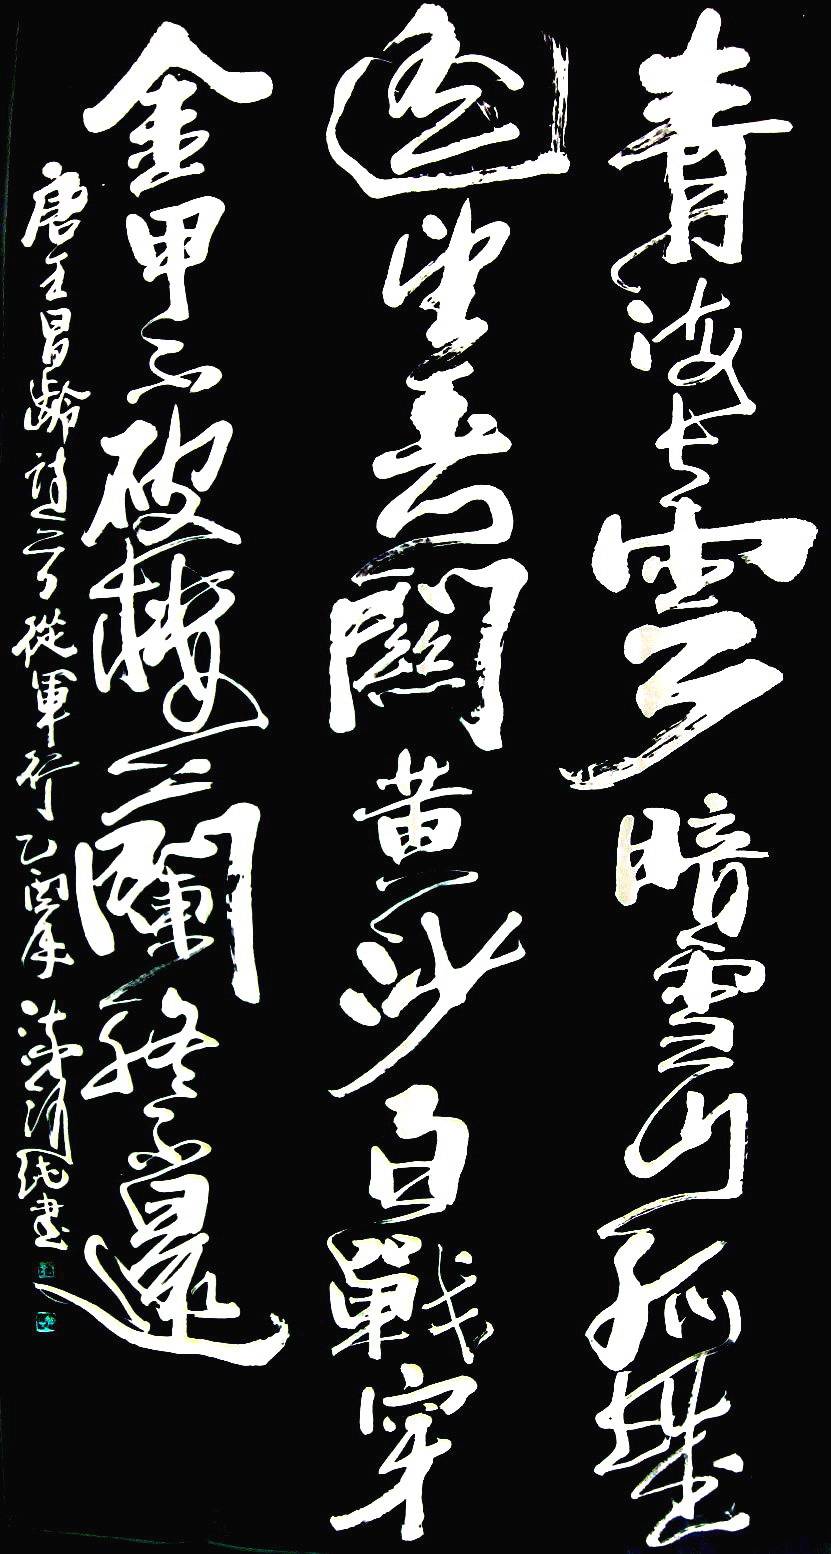 青海長雲暗雪山孤城
遙望玉門關黃沙百戰穿
金甲不破樓蘭終不還
唐王昌齡詩從軍行乙酉年書